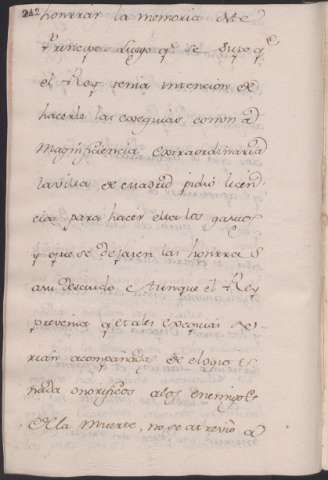 242
honrrar la memoria de e
Principe Luego qe se supo qe
el Rey tenia intencion de
hacerle las exequias con una
magnificencia extraordinaria
la villa de Madrid pidio licen
cia para hacer ella los gastos
y que se dejasen las honrras a
su descuido e Aunque el Rey
prevenia q etales exequias se-
rian acompañadas de elogios
nada onorificos a los enemigos
de la muerte, no se atrevio a